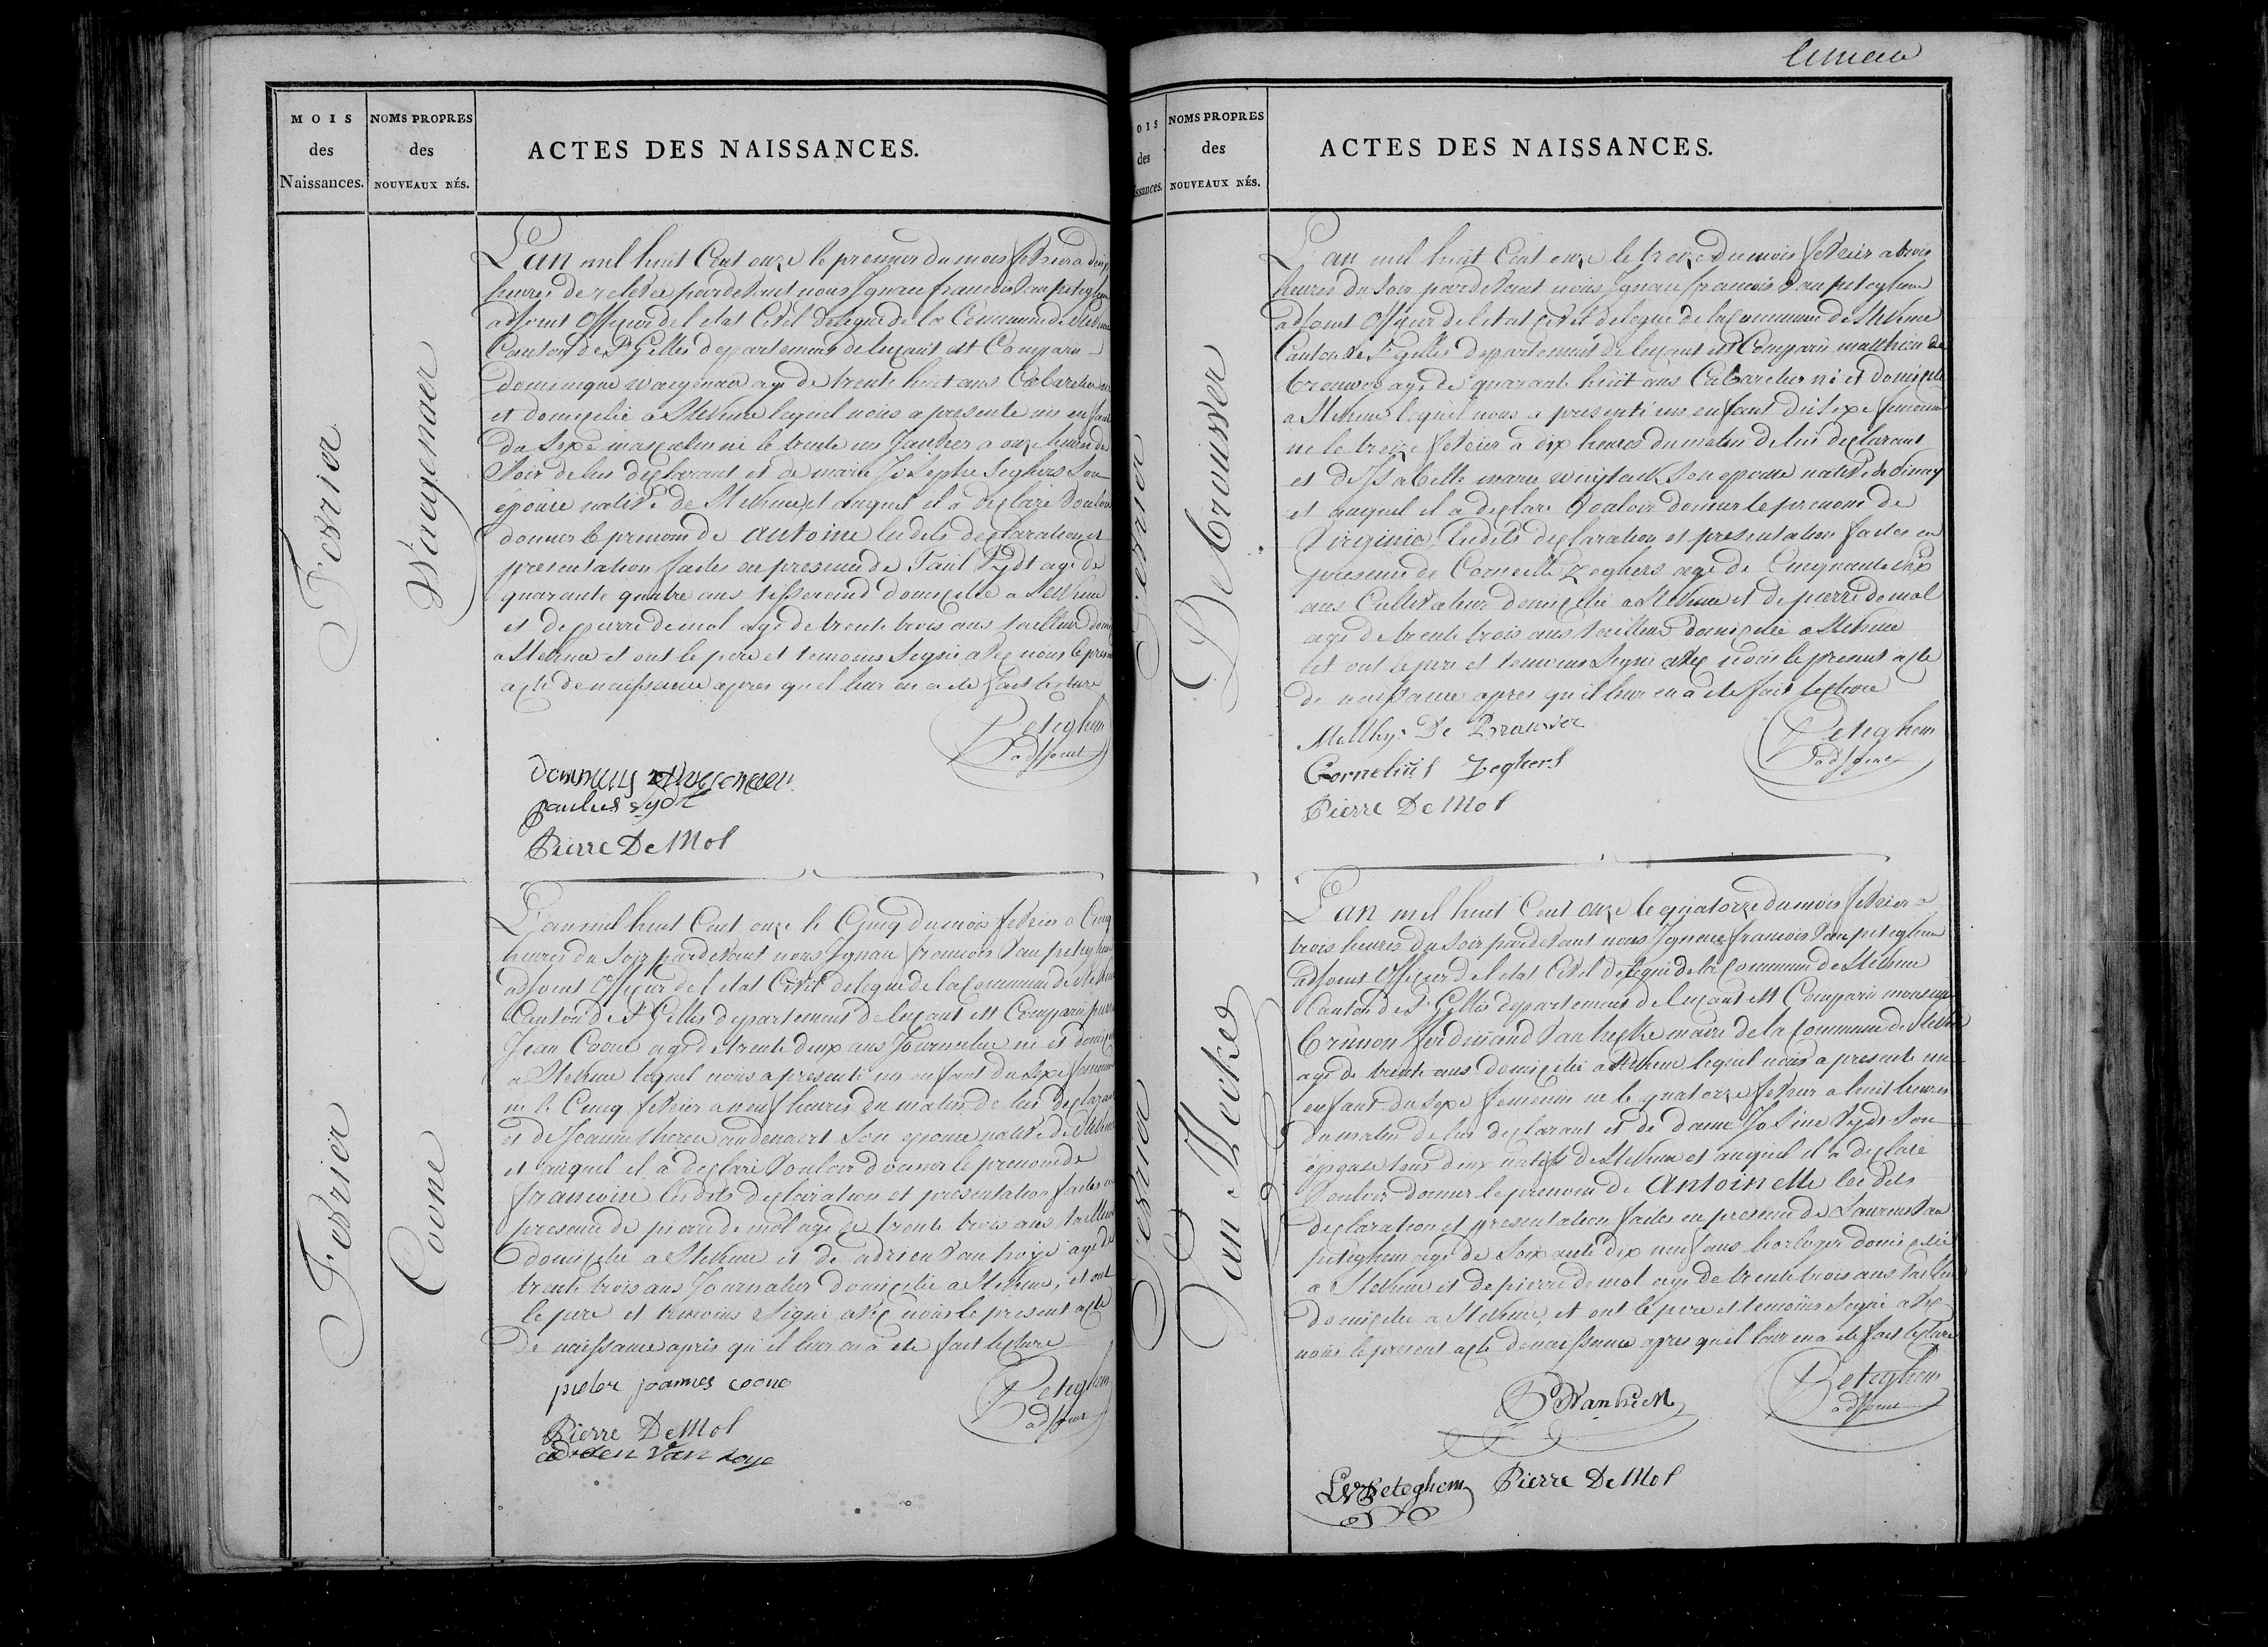 MOIS
des
Naissances.
NOMS PROPRES
des
NOUVEAUX NÉS.
ACTES DES NAISSANCES.
Fevrier
Waegenaer
L'an mil huit Cent onze le premier du mois fevrier a deux
heures de relevee pardevant nous Ignace francois Van peteghem
adjoint Officier de l etat Civil delegué de la Commune de Stekene
Canton de St Gilles departement de lescaut est Comparu
dominique waegenaer age de trente huit ans Cabaretier né
et domicilié a Stekene lequel nous a presenté un enfant
du Sexe masculin né le trente un Janvier a onze heures du
Soir de lui declarant et de marie Josephe Seghers Son
épouse native de Stekene et auquel il a declaré vouloir
donner le prenom de antoine lesdits declaration et
presentation faites en presence de Paul Vydt age de
quarante quatre ans tisserand domicilié a Stekene
et de pierre de mol age de trente trois ans tailleur domi
a Stekene et ont le pere et temoins Signé avec nous le present
acte de naissance apres qu il leur en a ete fait lecture
Peteghem
adjoint
paulus vydt
Pierre De Mol
Fevrier
Coone
L'an mil huit Cent onze le Cinq du mois fevrier a Cinq
heures du Soir pardevant nous Ignace francois Van peteghem
adjoint Officier de l etat Civil delegué de la Commune de Stekene
Canton de St Gilles departement de lescaut est Comparu pierre
Jean Coone age de trente deux ans Journalier né et domicilié
a Stekene lequel nous a presenté un enfant du Sexe feminin
né le Cinq fevrier a neuf heures du matin de lui declarant
et de Jeanne therese audenaert Son epouse native de Stekene
et auquel il a declaré Vouloir donner le prenom de
francoise lesdits declaration et presentation faites en
presence de pierre de mol age de trente trois ans tailleur
domicilié a Stekene et de adrien Van hoye age de
trente trois ans Journalier domicilié a Stekene, et ont
le pere et temoins Signé avec nous le present acte
de naissance aprés qu il leur en a ete fait lecture
pieter joannes coone
Peteghem
adjoint
Pierre De Mol
adrien van hoye
lumeau
OIS
des
ssances.
NOMS PROPRES
des
NOUVEAUX NÉS.
ACTES DES NAISSANCES.
Fevrier
De brouwer
L'an mil huit Cent onze le treize du mois fevrier a trois
heures du Soir pardevant nous Ignace francois Van peteghem
adjoint Officier de l etat civil delegué de la Commune de Stekene
Canton de St gilles departement de lescaut est Comparu matthieu de
brouwer age de quarante huit ans Cabaretier né et domicilié
a Stekene lequel nous a presenté un enfant du Sexe feminin
né le treize fevrier a dix heures du matin de lui declarant
et de Isabelle marie wuytack Son epouse native de Sinay
et auquel il a declaré Vouloir donner le prenom de
Virginie lesdits declaration et presentation faites en
presence de Corneille Zeghers age de Cinquante dix
ans Cultivateur domicilié a Stekene et de pierre de mol
age de trente trois ans tailleur domicilié a Stekene
et ont le pere et temoins Signé avec nous le present acte
de naissance apres qu il leur en a ete fait lecture
Matthys De Brauwer
Peteghem
adjoint
Cornelius Zeghers
Pierre De Mol
Fevrier
Van Hecke
L'an mil huit Cent onze le quatorze du mois fevrier a
trois heures du Soir pardevant nous Ignace francois Van peteghem
adjoint Officier de l etat Civil delegué de la Commune de Stekene
Canton de St Gilles departement de lescaut est Comparu monsieur
brunon ferdinand Van hecke maire de la Commune de Stekene
age de trente ans domicilié a Stekene lequel nous a presenté un
enfant du Sexe feminin né le quatorze fevrier a huit heures
du matin de lui declarant et de dame Josine Vydt Son
épouse tous deux natifs de Stekene et auquel il a declaré
Vouloir donner le prenom de Antoinette lesdits
declaration et presentation faites en presence de Laurent Van
peteghem age de Soixante dix neuf ans horloger domicilié
a Stekene et de pierre de mol age de trente trois ans tailleur
domicilié a Stekene, et ont le pere et temoins Signé avec
nous le present acte de naissance apres qu il leur en a ete fait lecture
Peteghem
adjoint
LVPeteghem Pierre De Mol